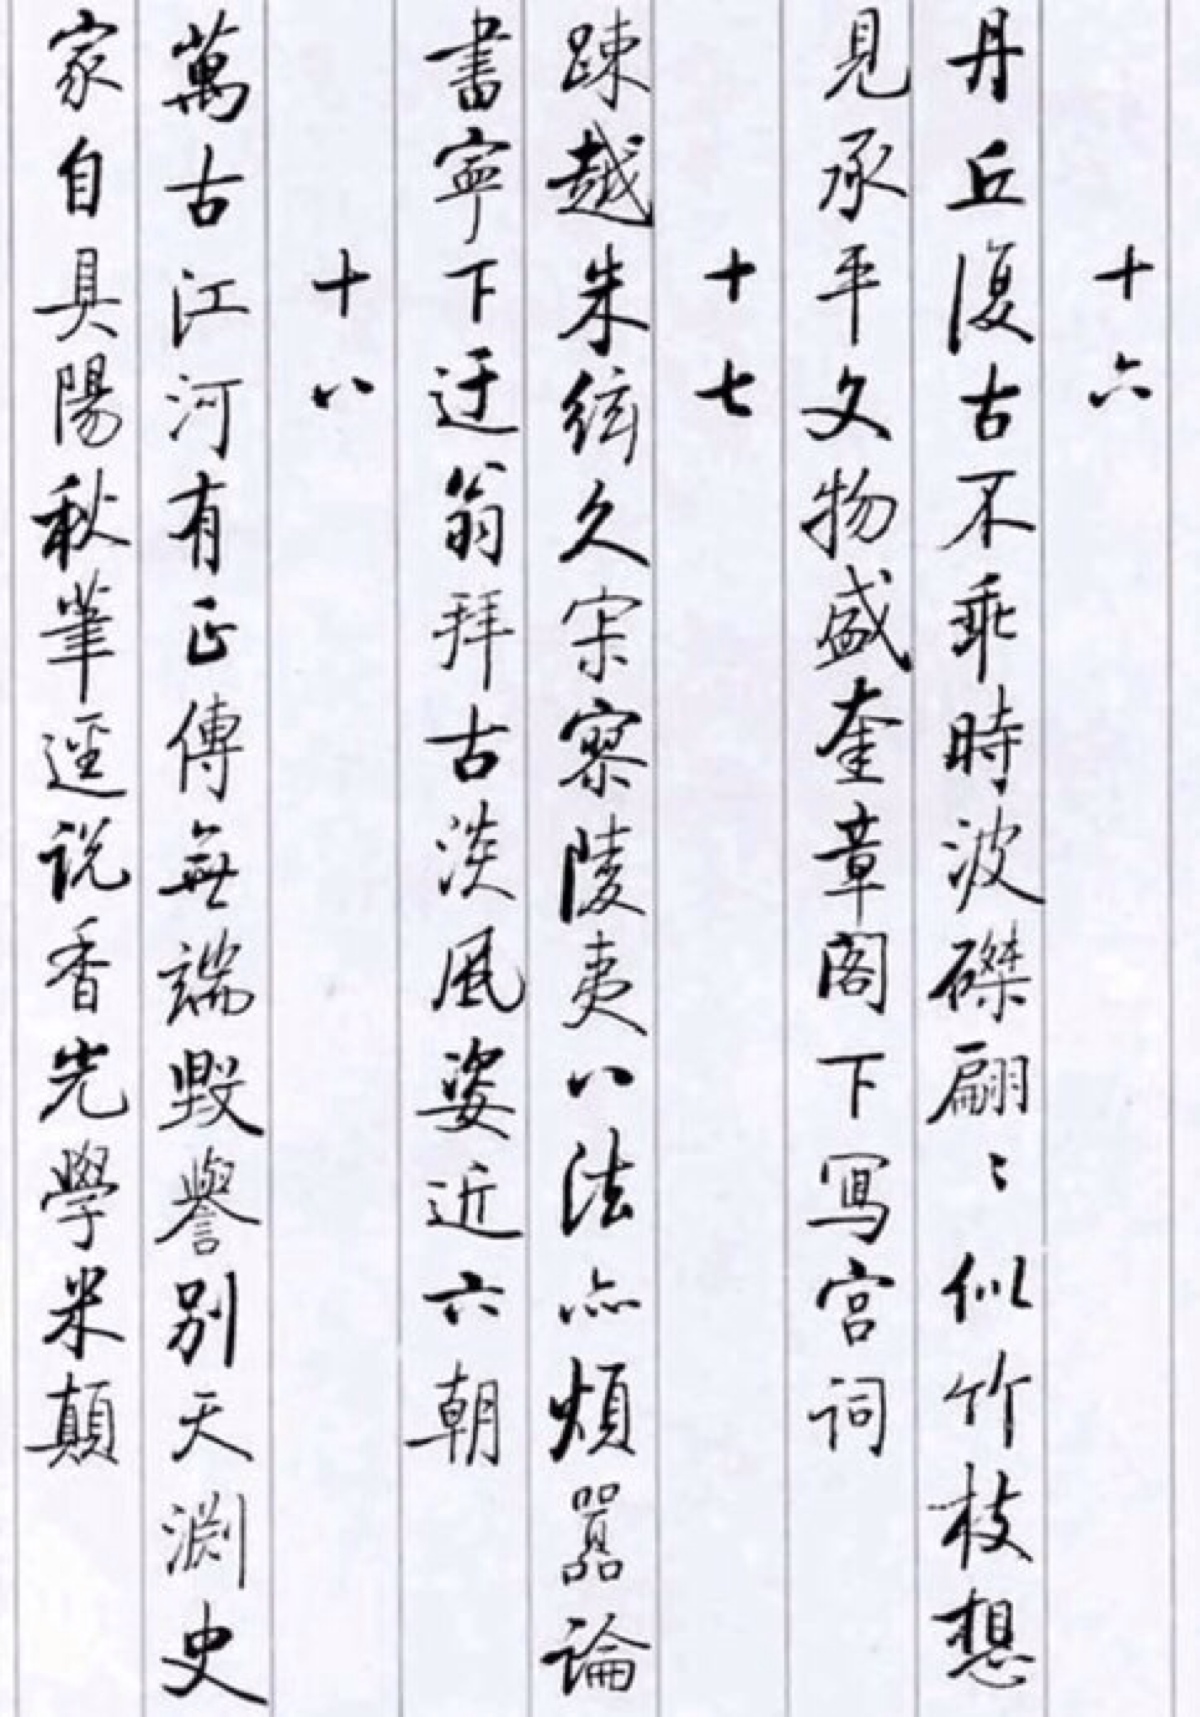 十六
丹丘復古不乖時波磔翩〻似竹枝想
見承平文物盛奎章閣下寫宮詞
十七
疎越朱絃久宗寥陵夷八法亦煩囂論
書寧下迂翁拜古淡風姿近六朝
十八
萬古江河有正傳無端毀譽別天淵史
家自具陽秋筆逕说香光學米顛